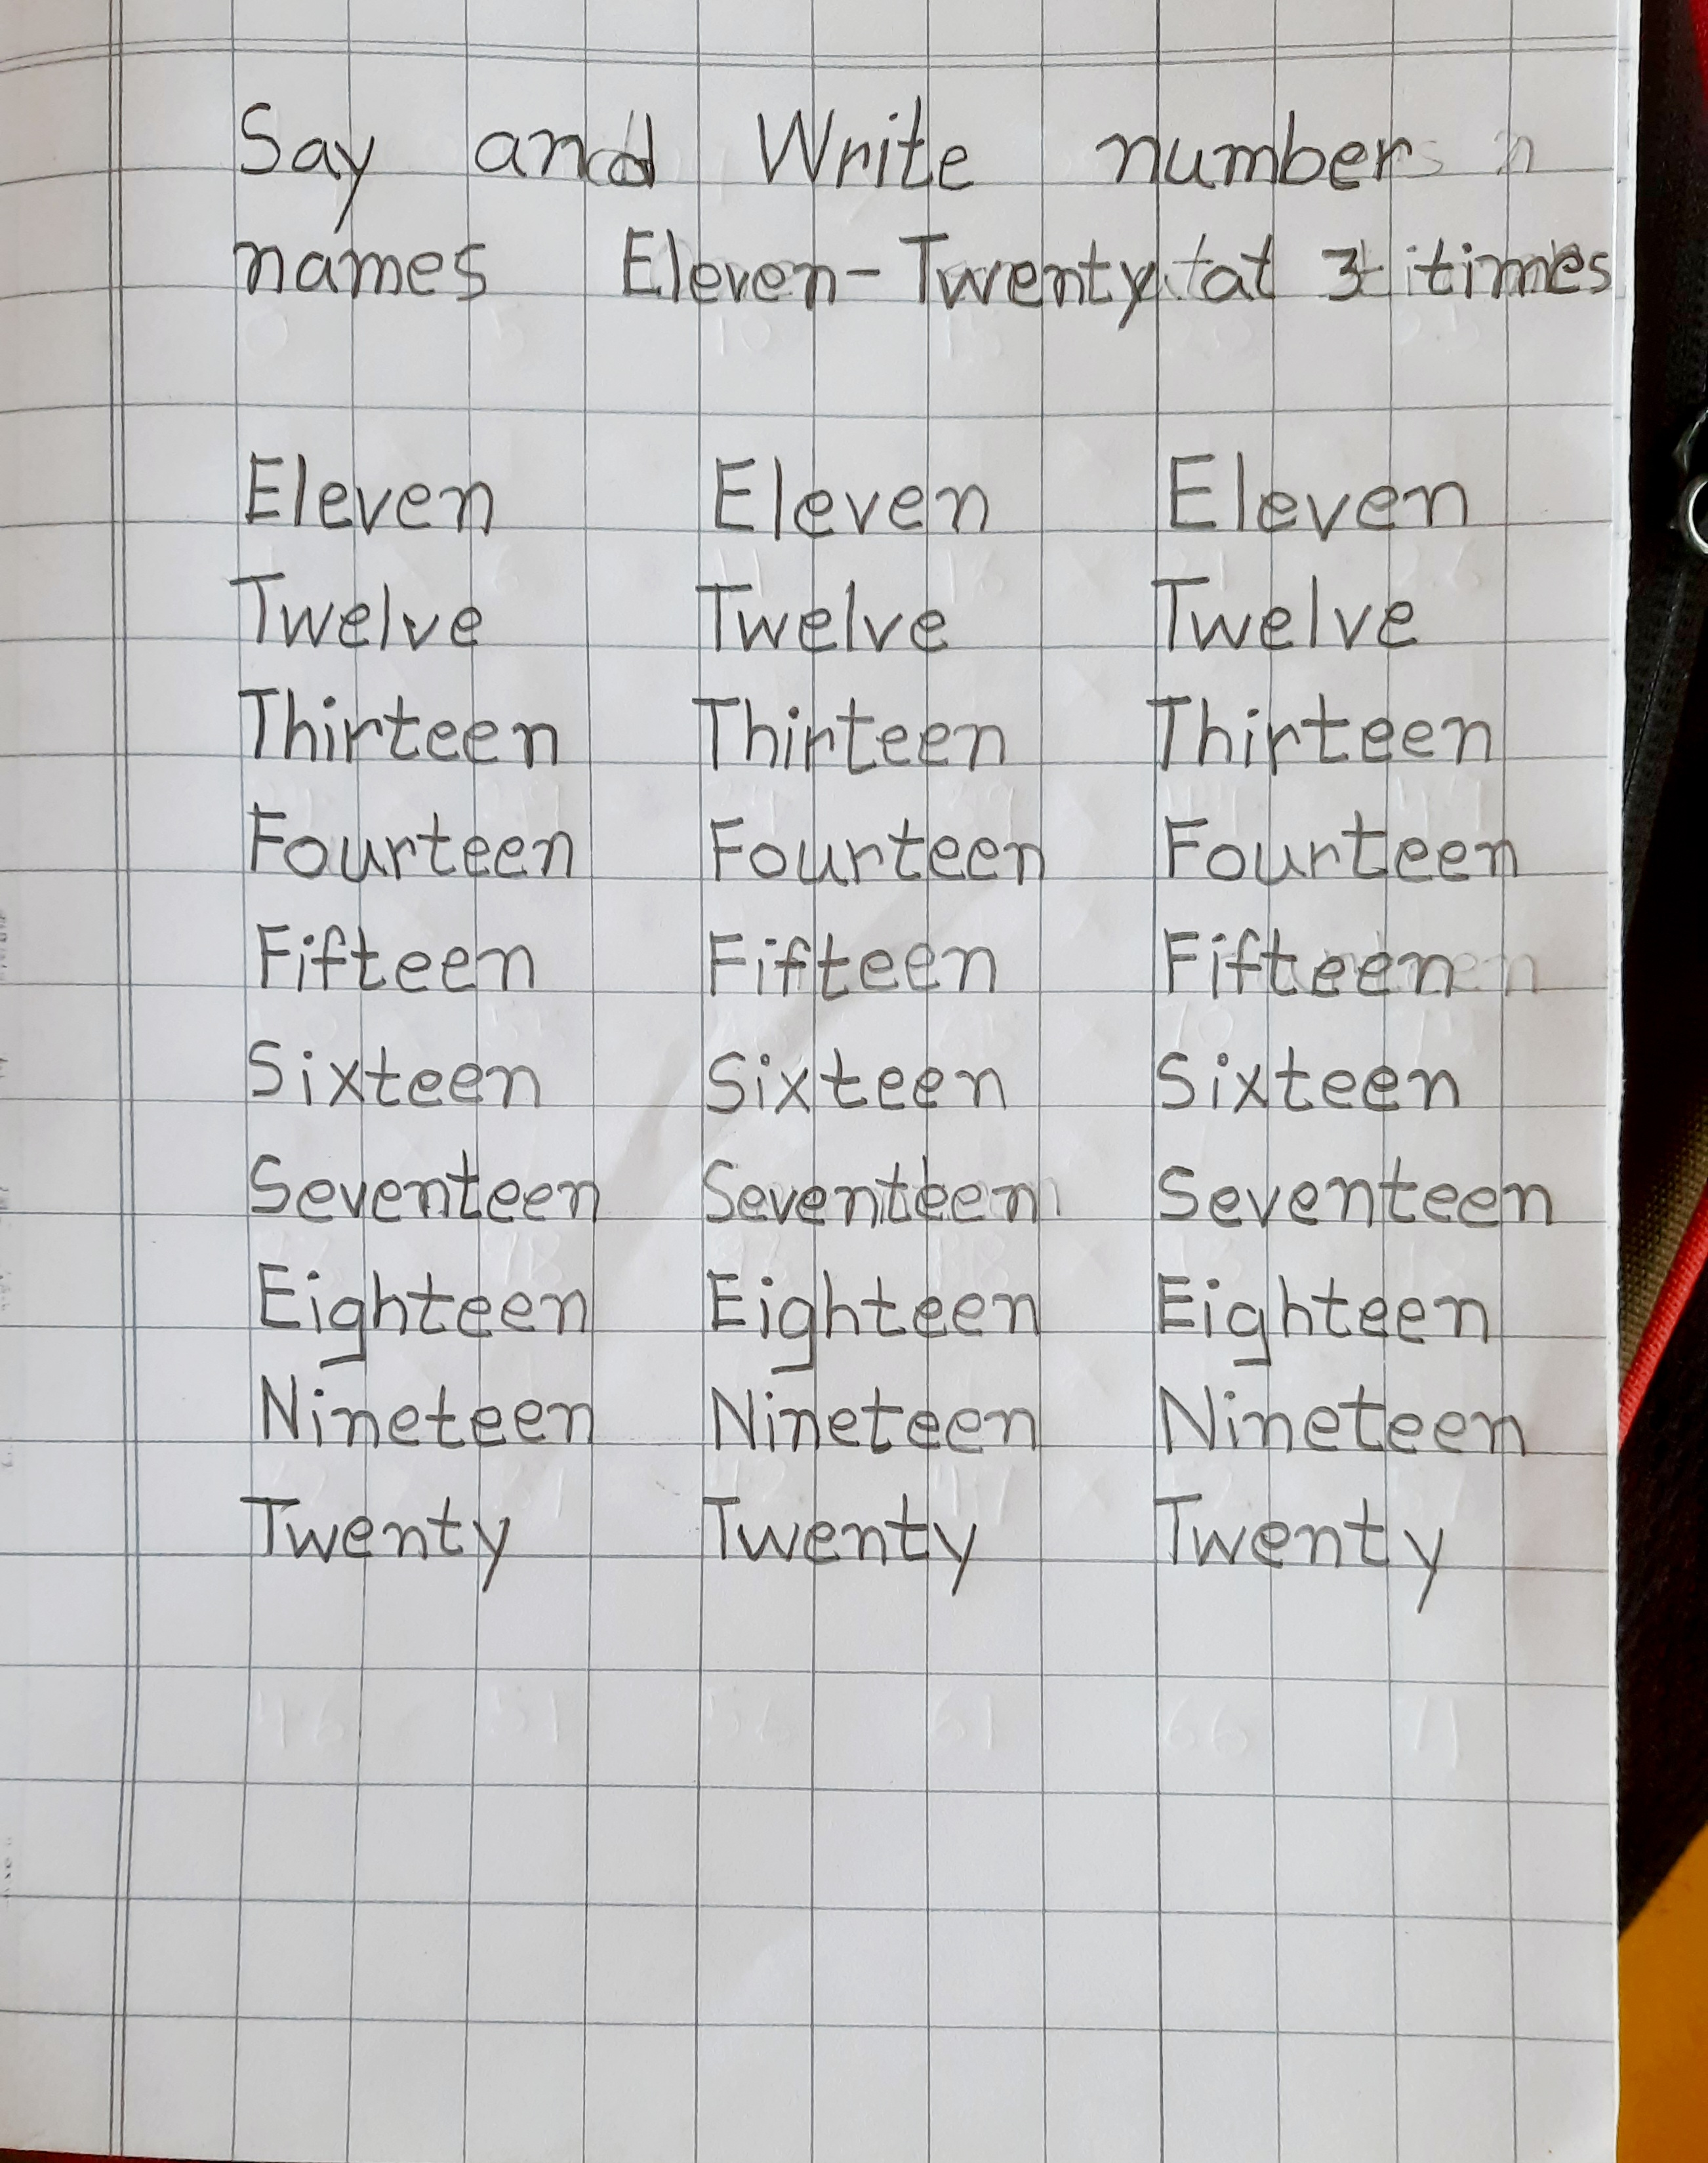 Say and Write number
names Eleven-Twenty at 3 times
Eleven Eleven Eleven
Twelve Twelve Twelve
Thirteen Thirteen Thirteen
Fourteen Fourteen Fourteen
Fifteen Fifteen Fifteen
Sixteen Sixteen Sixteen
Seventeen Seventeen Seventeen
Eighteen Eighteen Eighteen
Nineteen Nineteen Nineteen
Twenty Twenty Twenty